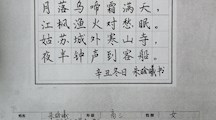 月落乌啼霜满天，
江枫渔火对愁眠。
姑苏城外寒山寺，
夜半钟声到客船。
辛丑冬日